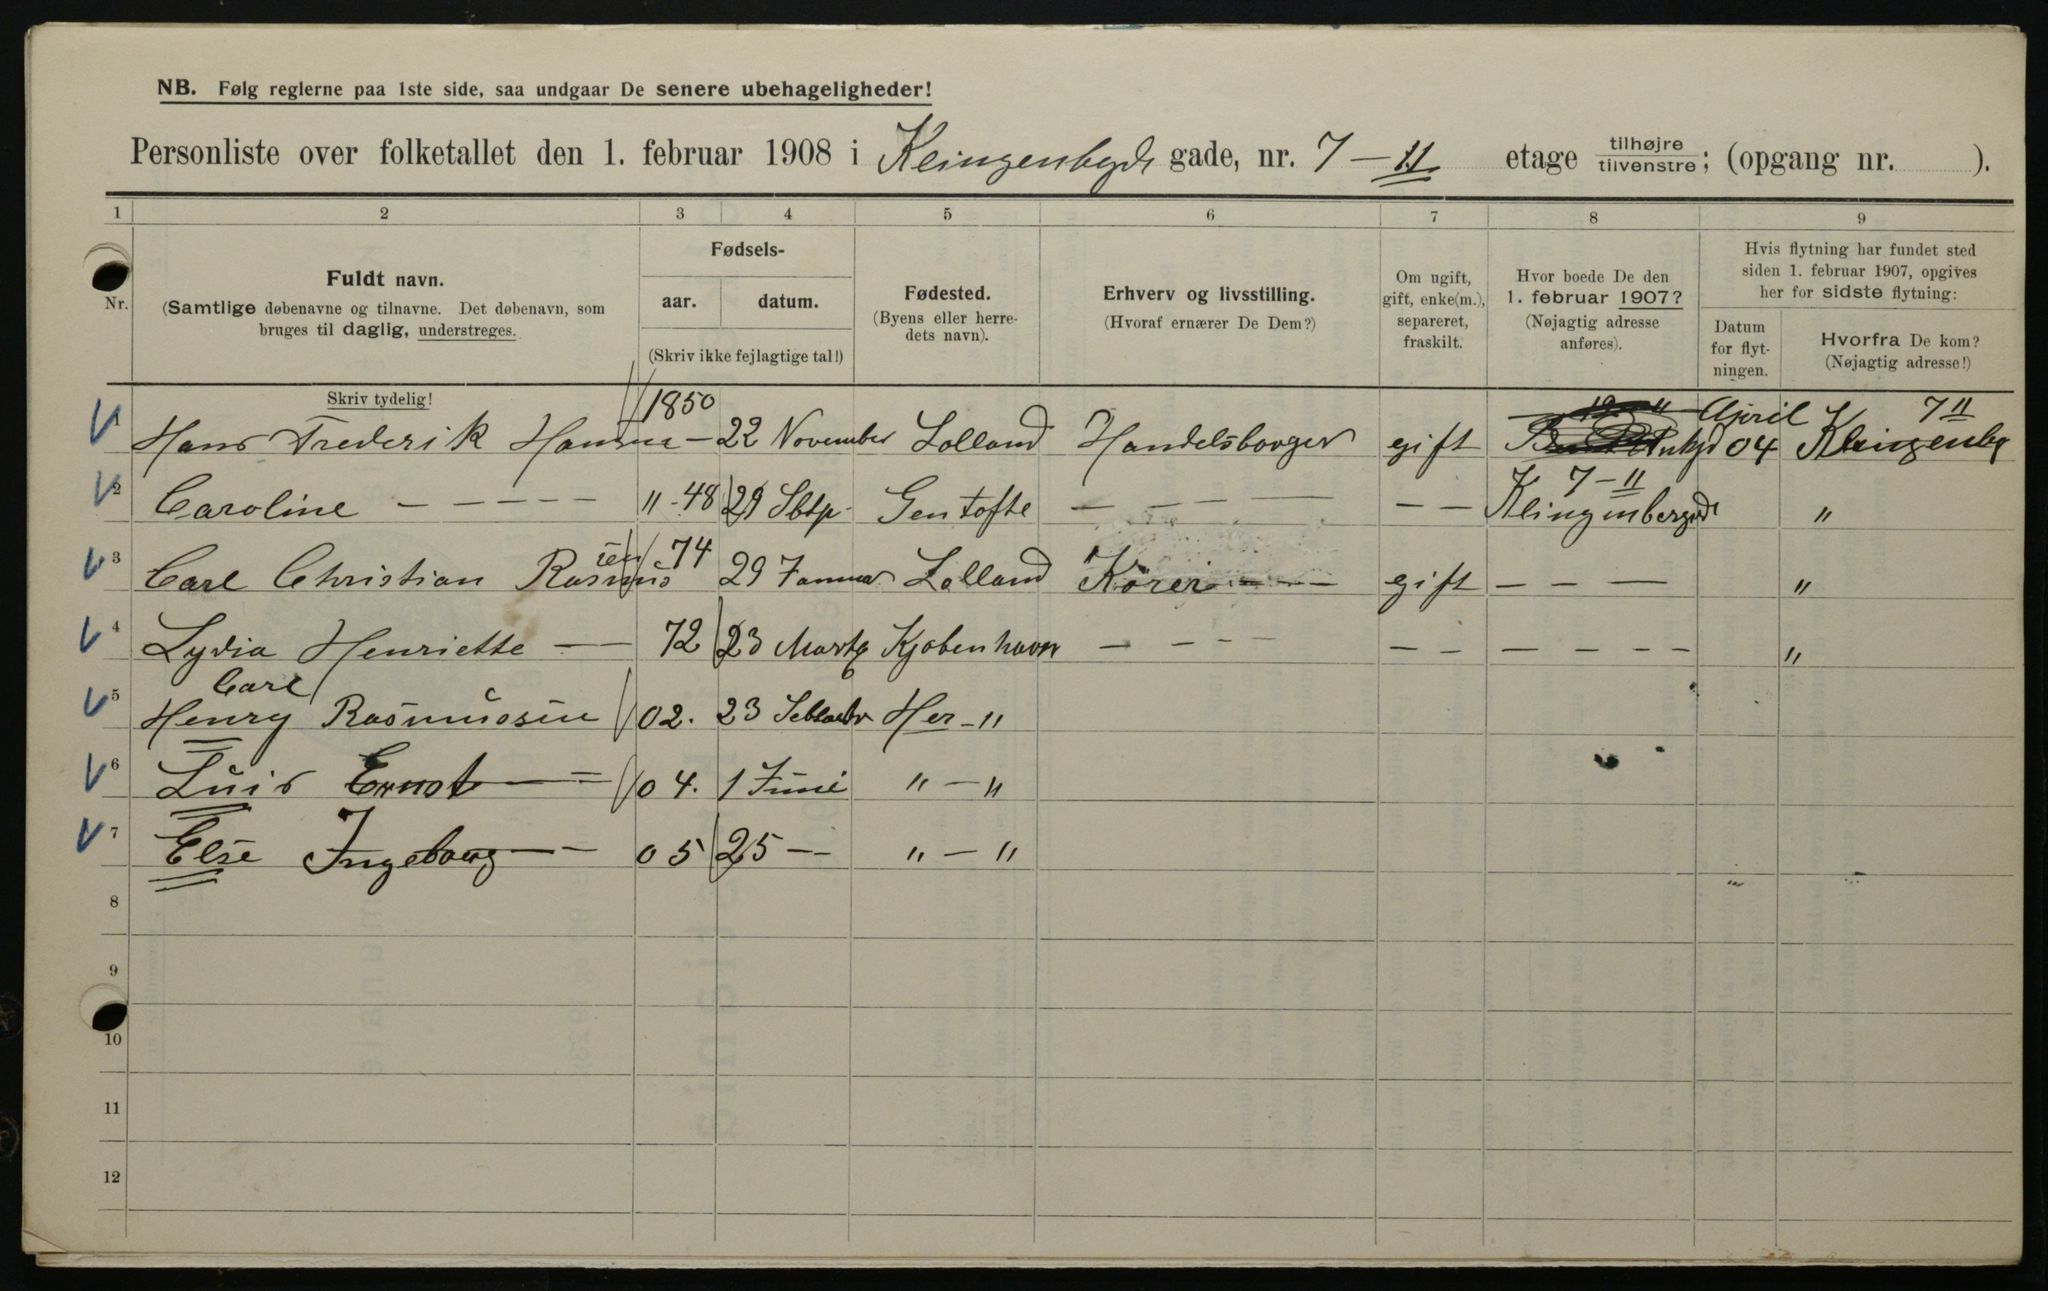 NB. Følg reglerne paa 1ste side, saa undgaar De senere ubehageligheder!
Personliste over folketallet den 1. februar 1908 i Klingenbgds gade, nr. 7 – 11 etage tilhøjre tilvenstre; (opgang nr. ).
1 2 3 4 5 6 7 8 9
Nr.
Fuldt navn.
(Samtlige døbenavne og tilnavne. Det døbenavn, som
bruges til daglig, understreges.
Skriv tydelig!
Fødsels-
aar. datum.
(Skriv ikke fejlagtige tal!)
Fødested.
(Byens eller herre-
dets navn).
Erhverv og livsstilling.
(Hvoraf ernærer De Dem?)
Om ugift,
gift, enke(m.),
separeret,
fraskilt.
Hvor boede De den
1. februar 1907?
(Nøjagtig adresse
anføres).
Hvis flytning har fundet sted
siden 1. februar 1907, opgives
her for sidste flytning:
Datum
for flyt-
ningen.
Hvorfra De kom?
(Nøjagtig adresse!)
1 Hans Frederik Hansen – 1850 22 November Lolland Handelsborger gift April 04 Klingenbg 7 11
2 Caroline – – – – – " - 48 29 Sbtp. Gentofte – – – – – – 7 – 11 Klingenbergds "
3 Carl Christian Rasmussen 74 29 Januar Lolland Kører – – – gift – – – "
4 Lydia Henriette — 72 23 Martz Kjøbenhavn – – – – – – – – – – "
5 Henry Carl Rasmussen 02. 23 Her – "
6 Luis Ernst – = 04. 1 Juni " – "
7 Else Ingeborg – – 05 25 – " – "
8
9
10
11
12